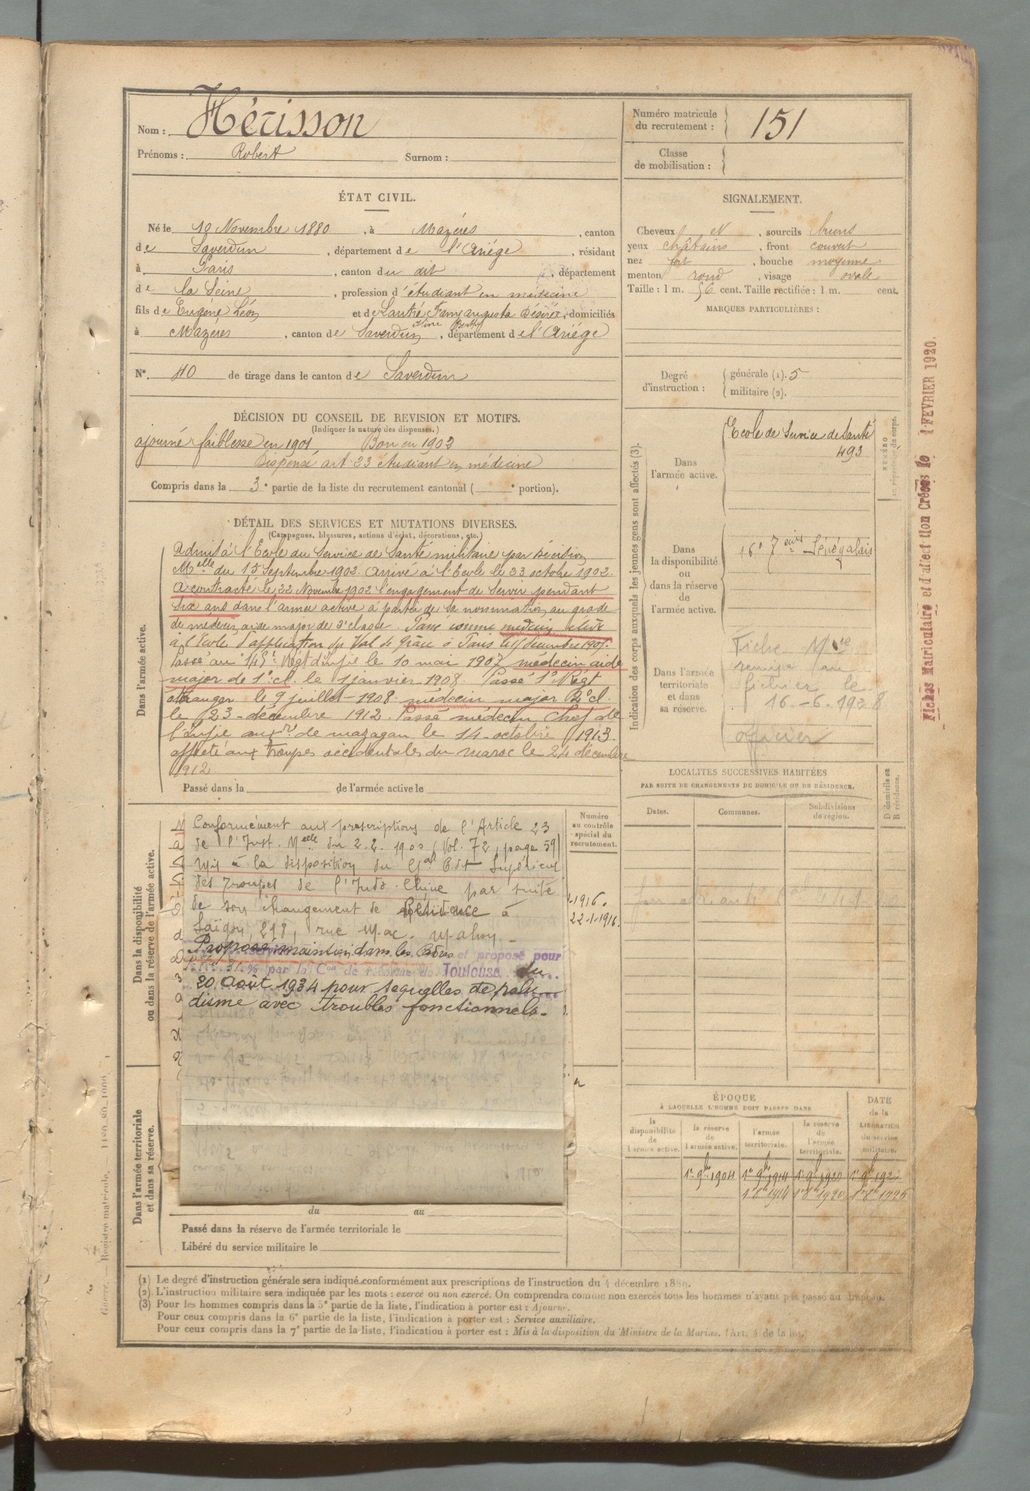 Nom : Hérisson
Prénoms : Robert Surnom :
ÉTAT CIVIL.
Né le 10 Novembre 1880, à Mazères, canton
de Saverdun, département de l'Ariège, résidant
à Paris, canton du dit, département
de la Seine, profession d'étudiant en médecine
fils de Eugène Léon et de domiciliés
à Mazères, canton de Saverdun, département de l'Ariège
N° 40 de tirage dans le canton de Saverdun
DÉCISION DU CONSEIL DE REVISION ET MOTIFS.
(Indiquer la nature des dispenses.)
ajourné faiblesse en 1901 Bon en 1902
Dispensé art 23 étudiant en médecine
Compris dans la 3e partie de la liste du recrutement cantonal ( e portion).
DÉTAIL DES SERVICES ET MUTATIONS DIVERSES.
(Campagnes, blessures, actions d'éclat, décorations, etc.)
Dans l'armée active.
Admis à l'École du Service de Santé militaire par Décision
Mlle du 15 Septembre 1902. Arrivé à l'École le 23 octobre 1902.
A contracté le 22 Novembre 1902 l'engagement de servir pendant
six ans dans l'armée active à partir de sa nomination au grade
de médecin aide major de 2e classe. Passé comme médecin élève
à l'École d'application du Val de Grâce à Paris
Passé au 145e Régt d'infie le 10 mai 1907 médecin aide
major de 1e cl. le 1 janvier 1908. Passé 1e Régt
étranger le 9 juillet 1908 médecin major 2e cl.
le 23 décembre 1912. Passé médecin chef de
l'infie auxre de mazagan le 14 octobre 1913.
affecté aux troupes occidentales du maroc le 24 décembre
1912
Passé dans la de l'armée active le
Dans la disponibilité
ou dans la réserve de l'armée active.
Conformément aux prescriptions de l'Article 23
de l'Inst. Mlle du 2.2.1900 (Vol. 72, page 59)
mis à la disposition du Gal Cdt Supérieur
des troupes de l'Indo-Chine par suite
de son changement de Résidence à
Saïgon, 218, rue Mac-Mahon.
Proposé maintien dans les Cadres et proposé pour
par la Con de réforme de Toulouse du
20 Août 1934 pour séquelles de palu-
disme avec troubles fonctionnels.
Numéro
au contrôle
spécial du
recrutement.
1916.
22-1-1916.
Dans l'armée territoriale
et dans sa réserve.
du au
Passé dans la réserve de l'armée territoriale le
Libéré du service militaire le
Numéro matricule
du recrutement : 151
Classe
de mobilisation :
SIGNALEMENT.
Cheveux et, sourcils bruns
yeux châtains, front couvert
nez fort, bouche moyenne
menton rond, visage ovale
Taille : 1 m. 56 cent. Taille rectifiée : 1 m. cent.
MARQUES PARTICULIÈRES :
Degré
d'instruction :
générale (1). 5
militaire (2).
Indication des corps auxquels les jeunes gens sont affectés (3).
Dans
l'armée active.
École de Service de Santé
493
NUMÉRO
Dans
la disponibilité
ou
dans la réserve
de
l'armée active.
16e Sénégalais
Dans l'armée
territoriale
et dans
sa réserve.
Fiche Mle
remise au
fichier le
16-6-1928
officier
LOCALITÉS SUCCESSIVES HABITÉES
PAR SUITE DE CHANGEMENTS DE DOMICILE OU DE RÉSIDENCE.
Dates.
Communes.
Subdivisions
de région.
D domicile ou
R résidence.
ÉPOQUE
À LAQUELLE L'HOMME DOIT PASSER DANS
DATE
de la
LIBÉRATION
du service
militaire.
la
disponibilité
de
l'armée active.
la réserve
de
l'armée active.
l'armée
territoriale.
la réserve
de
l'armée
territoriale.
1er 9bre 1904
Fiches Matriculaire et d'affection Créées le 1 FÉVRIER 1920.
(1) Le degré d'instruction générale sera indiqué conformément aux prescriptions de l'instruction du 4 décembre 1889.
(2) L'instruction militaire sera indiquée par les mots : exercé ou non exercé. On comprendra comme non exercés tous les hommes n'ayant pas passé au drapeau.
(3) Pour les hommes compris dans la 5e partie de la liste, l'indication à porter est : Ajourné.
Pour ceux compris dans la 6e partie de la liste, l'indication à porter est : Service auxiliaire.
Pour ceux compris dans la 7e partie de la liste, l'indication à porter est : Mis à la disposition du Ministre de la Marine. (Art. 4 de la loi.)